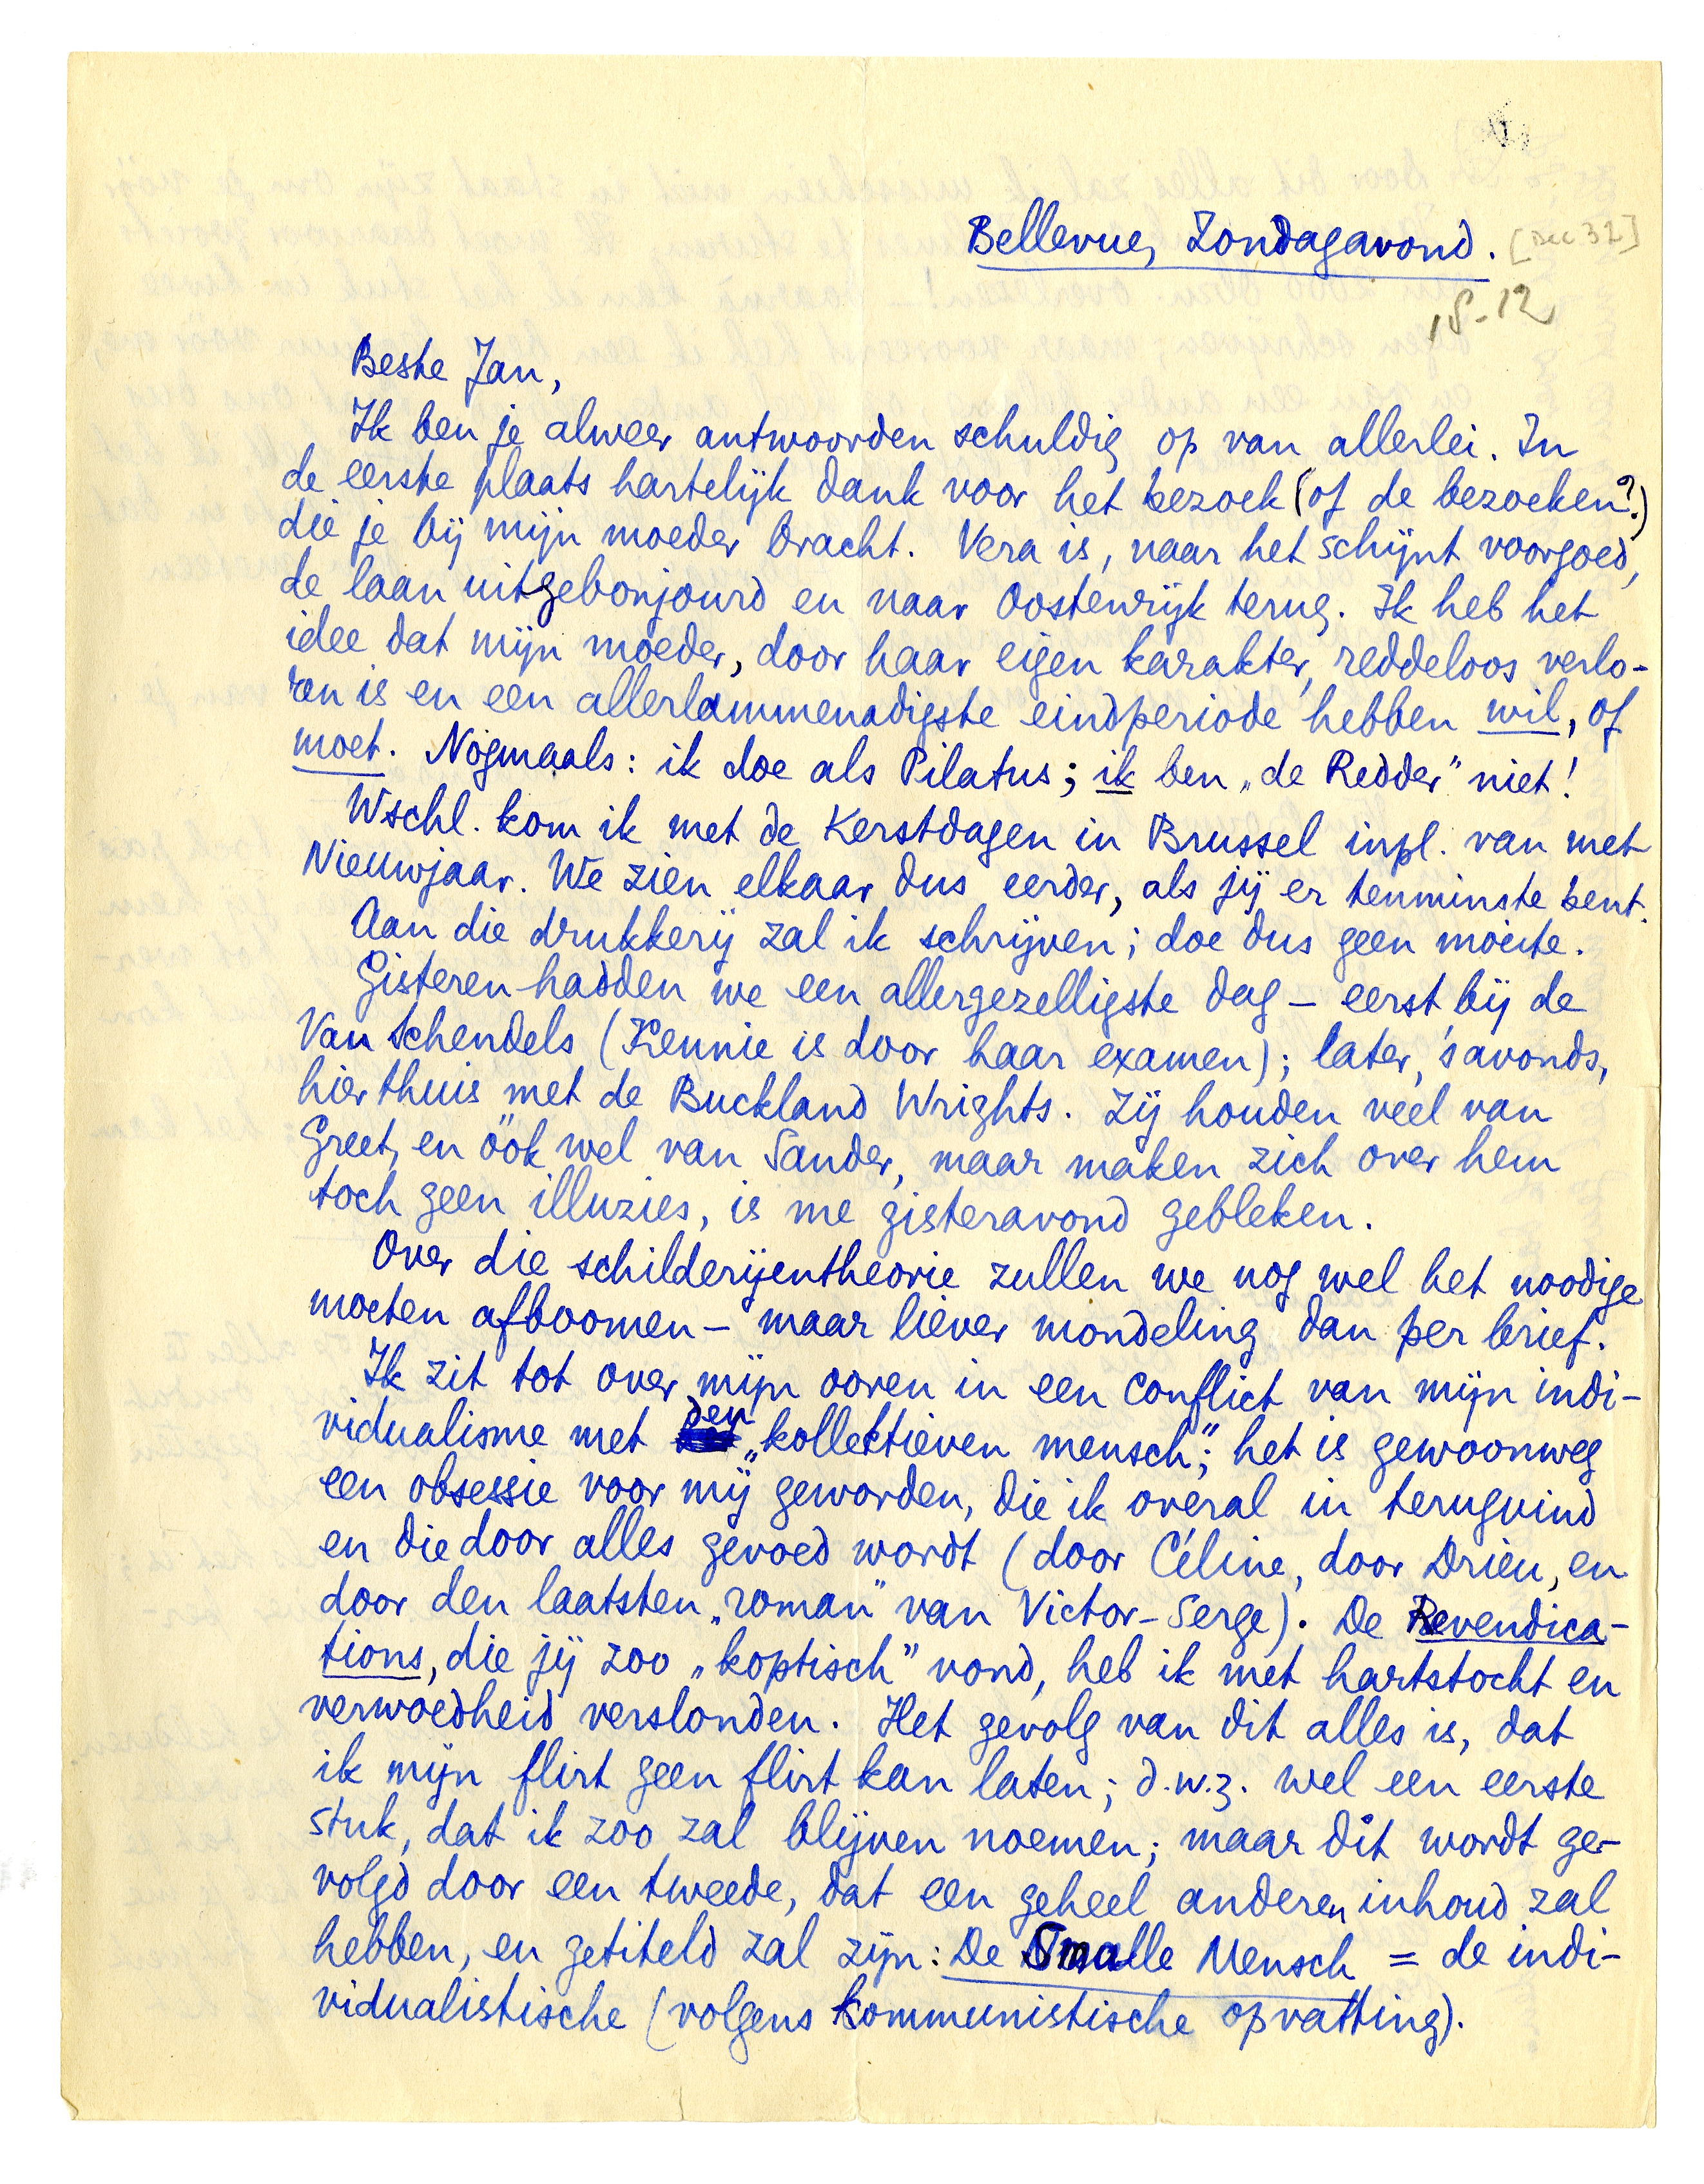 Bellevue, Zondagavond. [Dec. 32]
18-12
Beste Jan,
Ik ben je alweer antwoorden schuldig op van allerlei. In
de eerste plaats hartelijk dank voor het bezoek (of de bezoeken?)
die je bij mijn moeder bracht. Vera is, naar het schijnt voorgoed,
de laan uitgebonjourd en naar Oostenrijk terug. Ik heb het
idee dat mijn moeder, door haar eigen karakter, reddeloos verlo-
ren is en een allerlammenadigste eindperiode hebben wil, of
moet. Nógmaals: ik doe als Pilatus; ik ben „de Redder" niet!
Wschl. kom ik met de Kerstdagen in Brussel inpl. van met
Nieuwjaar. We zien elkaar dus eerder, als jij er tenminste bent.
Aan die drukkerij zal ik schrijven; doe dus geen moeite.
Gisteren hadden we een allergezelligste dag – eerst bij de
Van Schendels (Kennie is door haar examen); later, 's avonds,
hier thuis met de Buckland Wrights. Zij houden veel van
Greet, en óók wel van Sander, maar maken zich over hem
toch geen illuzies, is me gisteravond gebleken.
Over die schilderijentheorie zullen we nog wel het noodige
moeten afboomen – maar liever mondeling dan per brief.
Ik zit tot over mijn ooren in een conflict van mijn indi-
vidualisme met den „kollektieven mensch"; het is gewoonweg
een obsessie voor mij geworden, die ik overal in terugvind
en die door alles gevoed wordt (door Céline, door Drieu, en
door den laatsten „roman" van Victor-Serge). De Revendica-
tions, die jij zoo „koptisch" vond, heb ik met hartstocht en
verwoedheid verslonden. Het gevolg van dit alles is, dat
ik mijn flirt geen flirt kan laten; d.w.z. wel een eerste
stuk, dat ik zoo zal blijven noemen; maar dit wordt ge-
volgd door een tweede, dat een geheel anderen inhoud zal
hebben, en getiteld zal zijn: De Smalle Mensch = de indi-
vidualistische (volgens kommunistische opvatting).